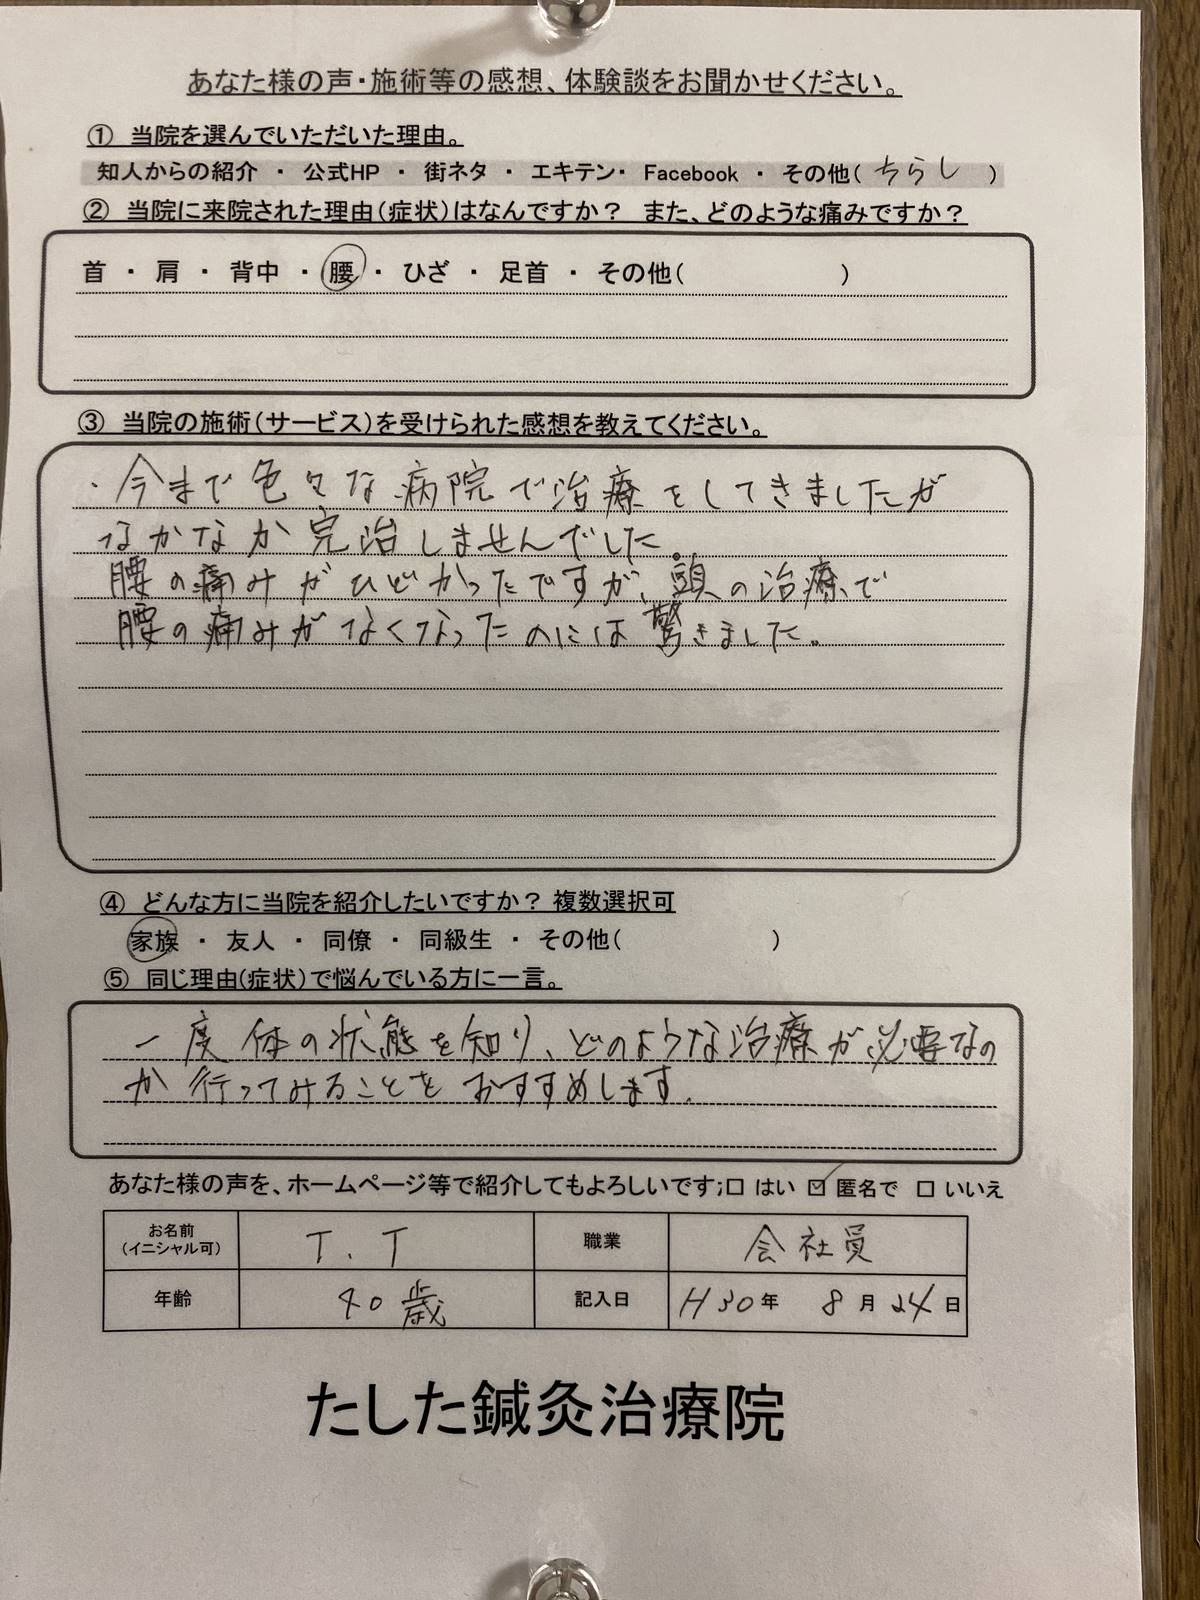 あなた様の声・施術等の感想、体験談をお聞かせください。
① 当院を選んでいただいた理由。
知人からの紹介 ・ 公式HP ・ 街ネタ ・ エキテン・ Facebook ・ その他( ちらし )
② 当院に来院された理由(症状)はなんですか? また、どのような痛みですか?
首 ・ 肩 ・ 背中 ・ 腰 ・ ひざ ・ 足首 ・ その他( )
③ 当院の施術(サービス)を受けられた感想を教えてください。
・今まで色々な病院で治療をしてきましたが
なかなか完治しませんでした。
腰の痛みがひどかったですが、頭の治療で
腰の痛みがなくなったのには驚きました。
④ どんな方に当院を紹介したいですか? 複数選択可
家族 ・ 友人 ・ 同僚 ・ 同級生 ・ その他( )
⑤ 同じ理由(症状)で悩んでいる方に一言。
一度体の状態を知り、どのような治療が必要なの
か行ってみることをおすすめします。
あなた様の声を、ホームページ等で紹介してもよろしいです;□ はい ☑ 匿名で □ いいえ
お名前(イニシャル可) T.T 職業 会社員
年齢 40歳 記入日 H30年 8月24日
たした鍼灸治療院